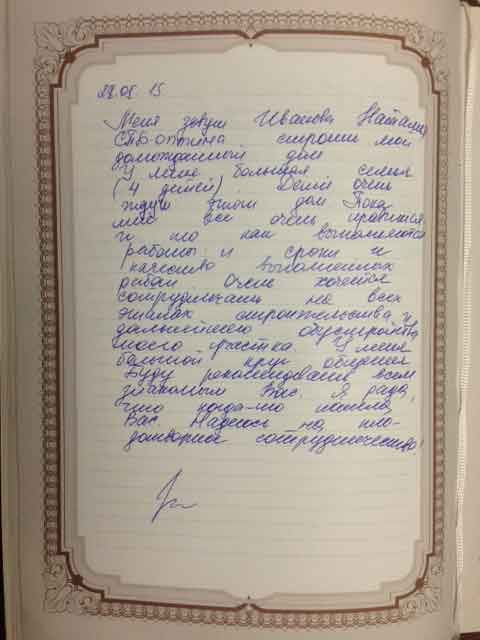 28.08.15
Меня зовут Иванова Наталия,
строит мой
долгожданный дом
У меня большая семья
(4 детей). Дети очень
ждут этот дом. Пока
мне все очень нравится,
и то как выполняются
работы: и сроки и
качество выполненных
работ. Очень хочется
сотрудничать на всех
этапах строительства и
дальнейшего обустройства
моего участка. У меня
большой круг общения
Буду рекомендовать всем
знакомым Вас. Я рада,
что когда-то нашла
Вас. Надеюсь на пло-
дотворное сотрудничество!